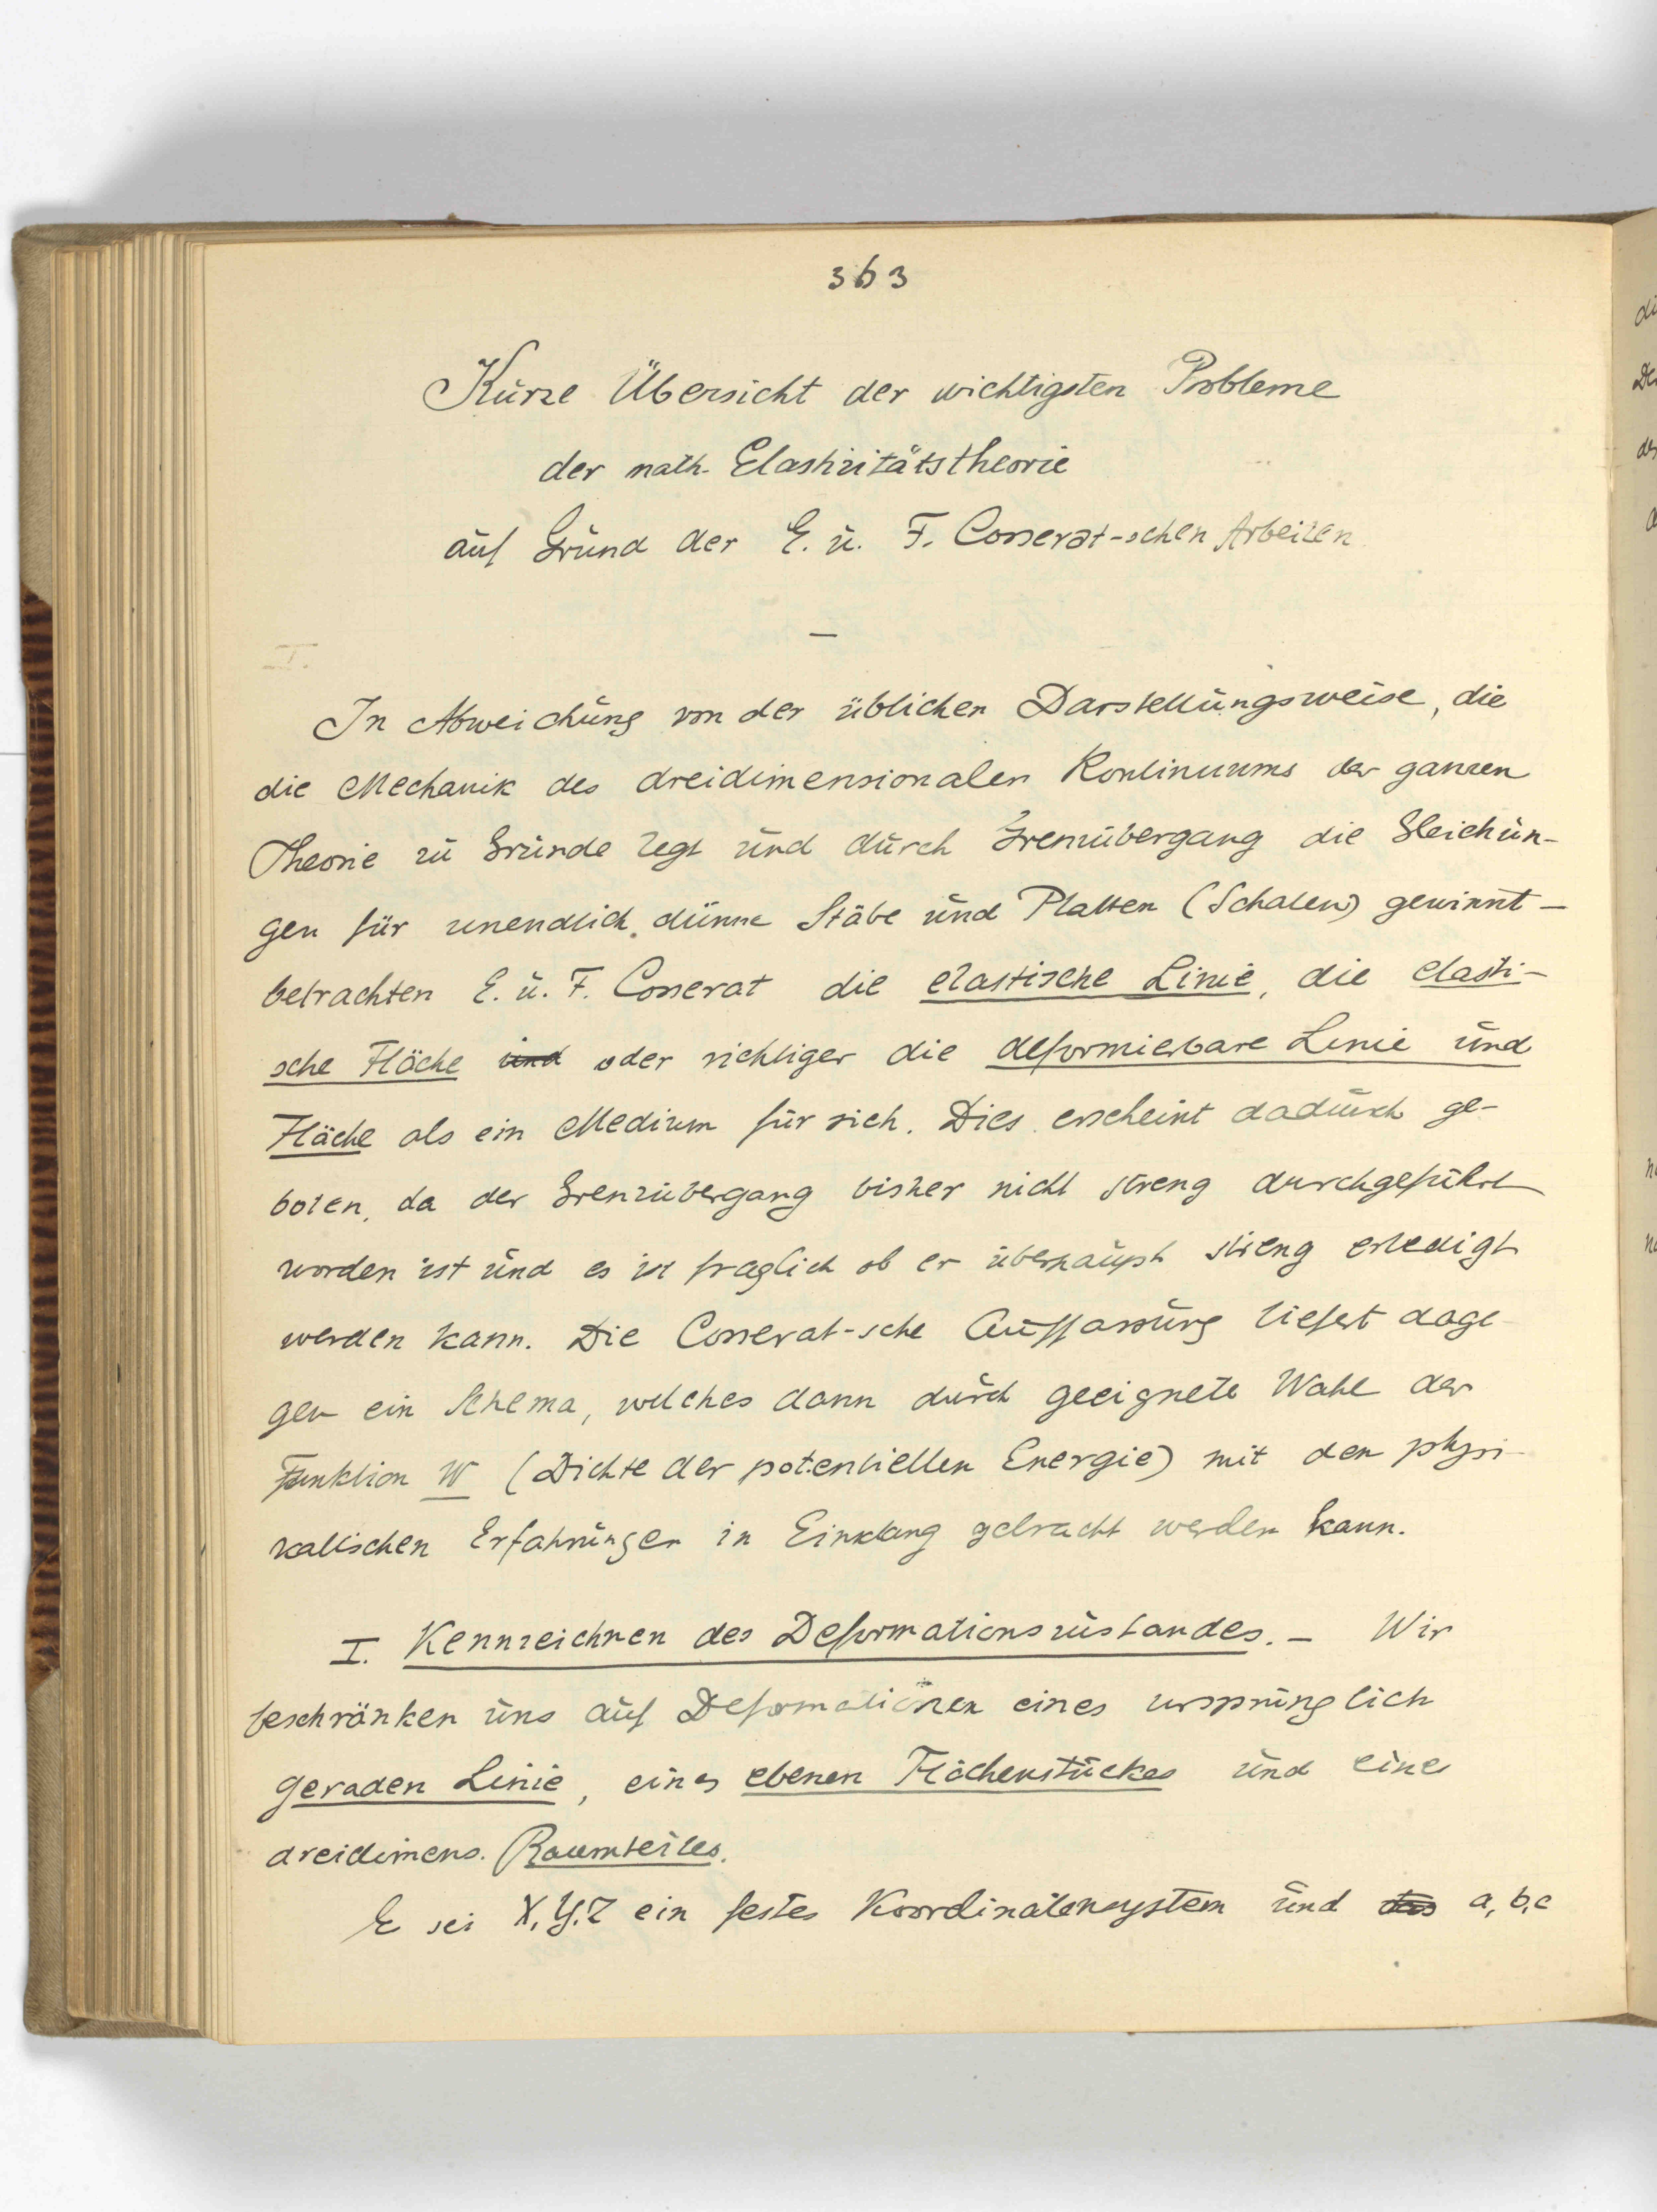 363
Kurze Übersicht der wichtigsten Probleme
der math. Elastizitätstheorie
auf Grund der E. u. F. Cosserat-schen Arbeiten
—
I.
In Abweichung von der üblichen Darstellungsweise, die
die Mechanik des dreidimensionalen Kontinuums der ganzen
Theorie zu Grunde legt und durch Grenzübergang die Gleichun-
gen für unendlich dünne Stäbe und Platten (Schalen) gewinnt –
betrachten E. u. F. Cosserat die elastische Linie, die elasti-
sche Fläche und oder richtiger die deformierbare Linie und
Fläche als ein Medium für sich. Dies erscheint dadurch ge-
boten, da der Grenzübergang bisher nicht streng durchgeführt
worden ist und es ist fraglich ob er überhaupt streng erledigt
werden kann. Die Cosserat-sche Auffassung liefert dage-
gen ein Schema, welches dann durch geeignete Wahl der
Funktion W (Dichte der potentiellen Energie) mit den physi-
kalischen Erfahrungen in Einklang gebracht werden kann.
I. Kennzeichnen des Deformationszustandes. – Wir
beschränken uns auf Deformationen eines ursprünglich
geraden Linie, eines ebenen Flächenstückes und eines
dreidimens. Raumteiles.
Es sei X, Y, Z ein festes Koordinatensystem und das a, b, c
di
De
des